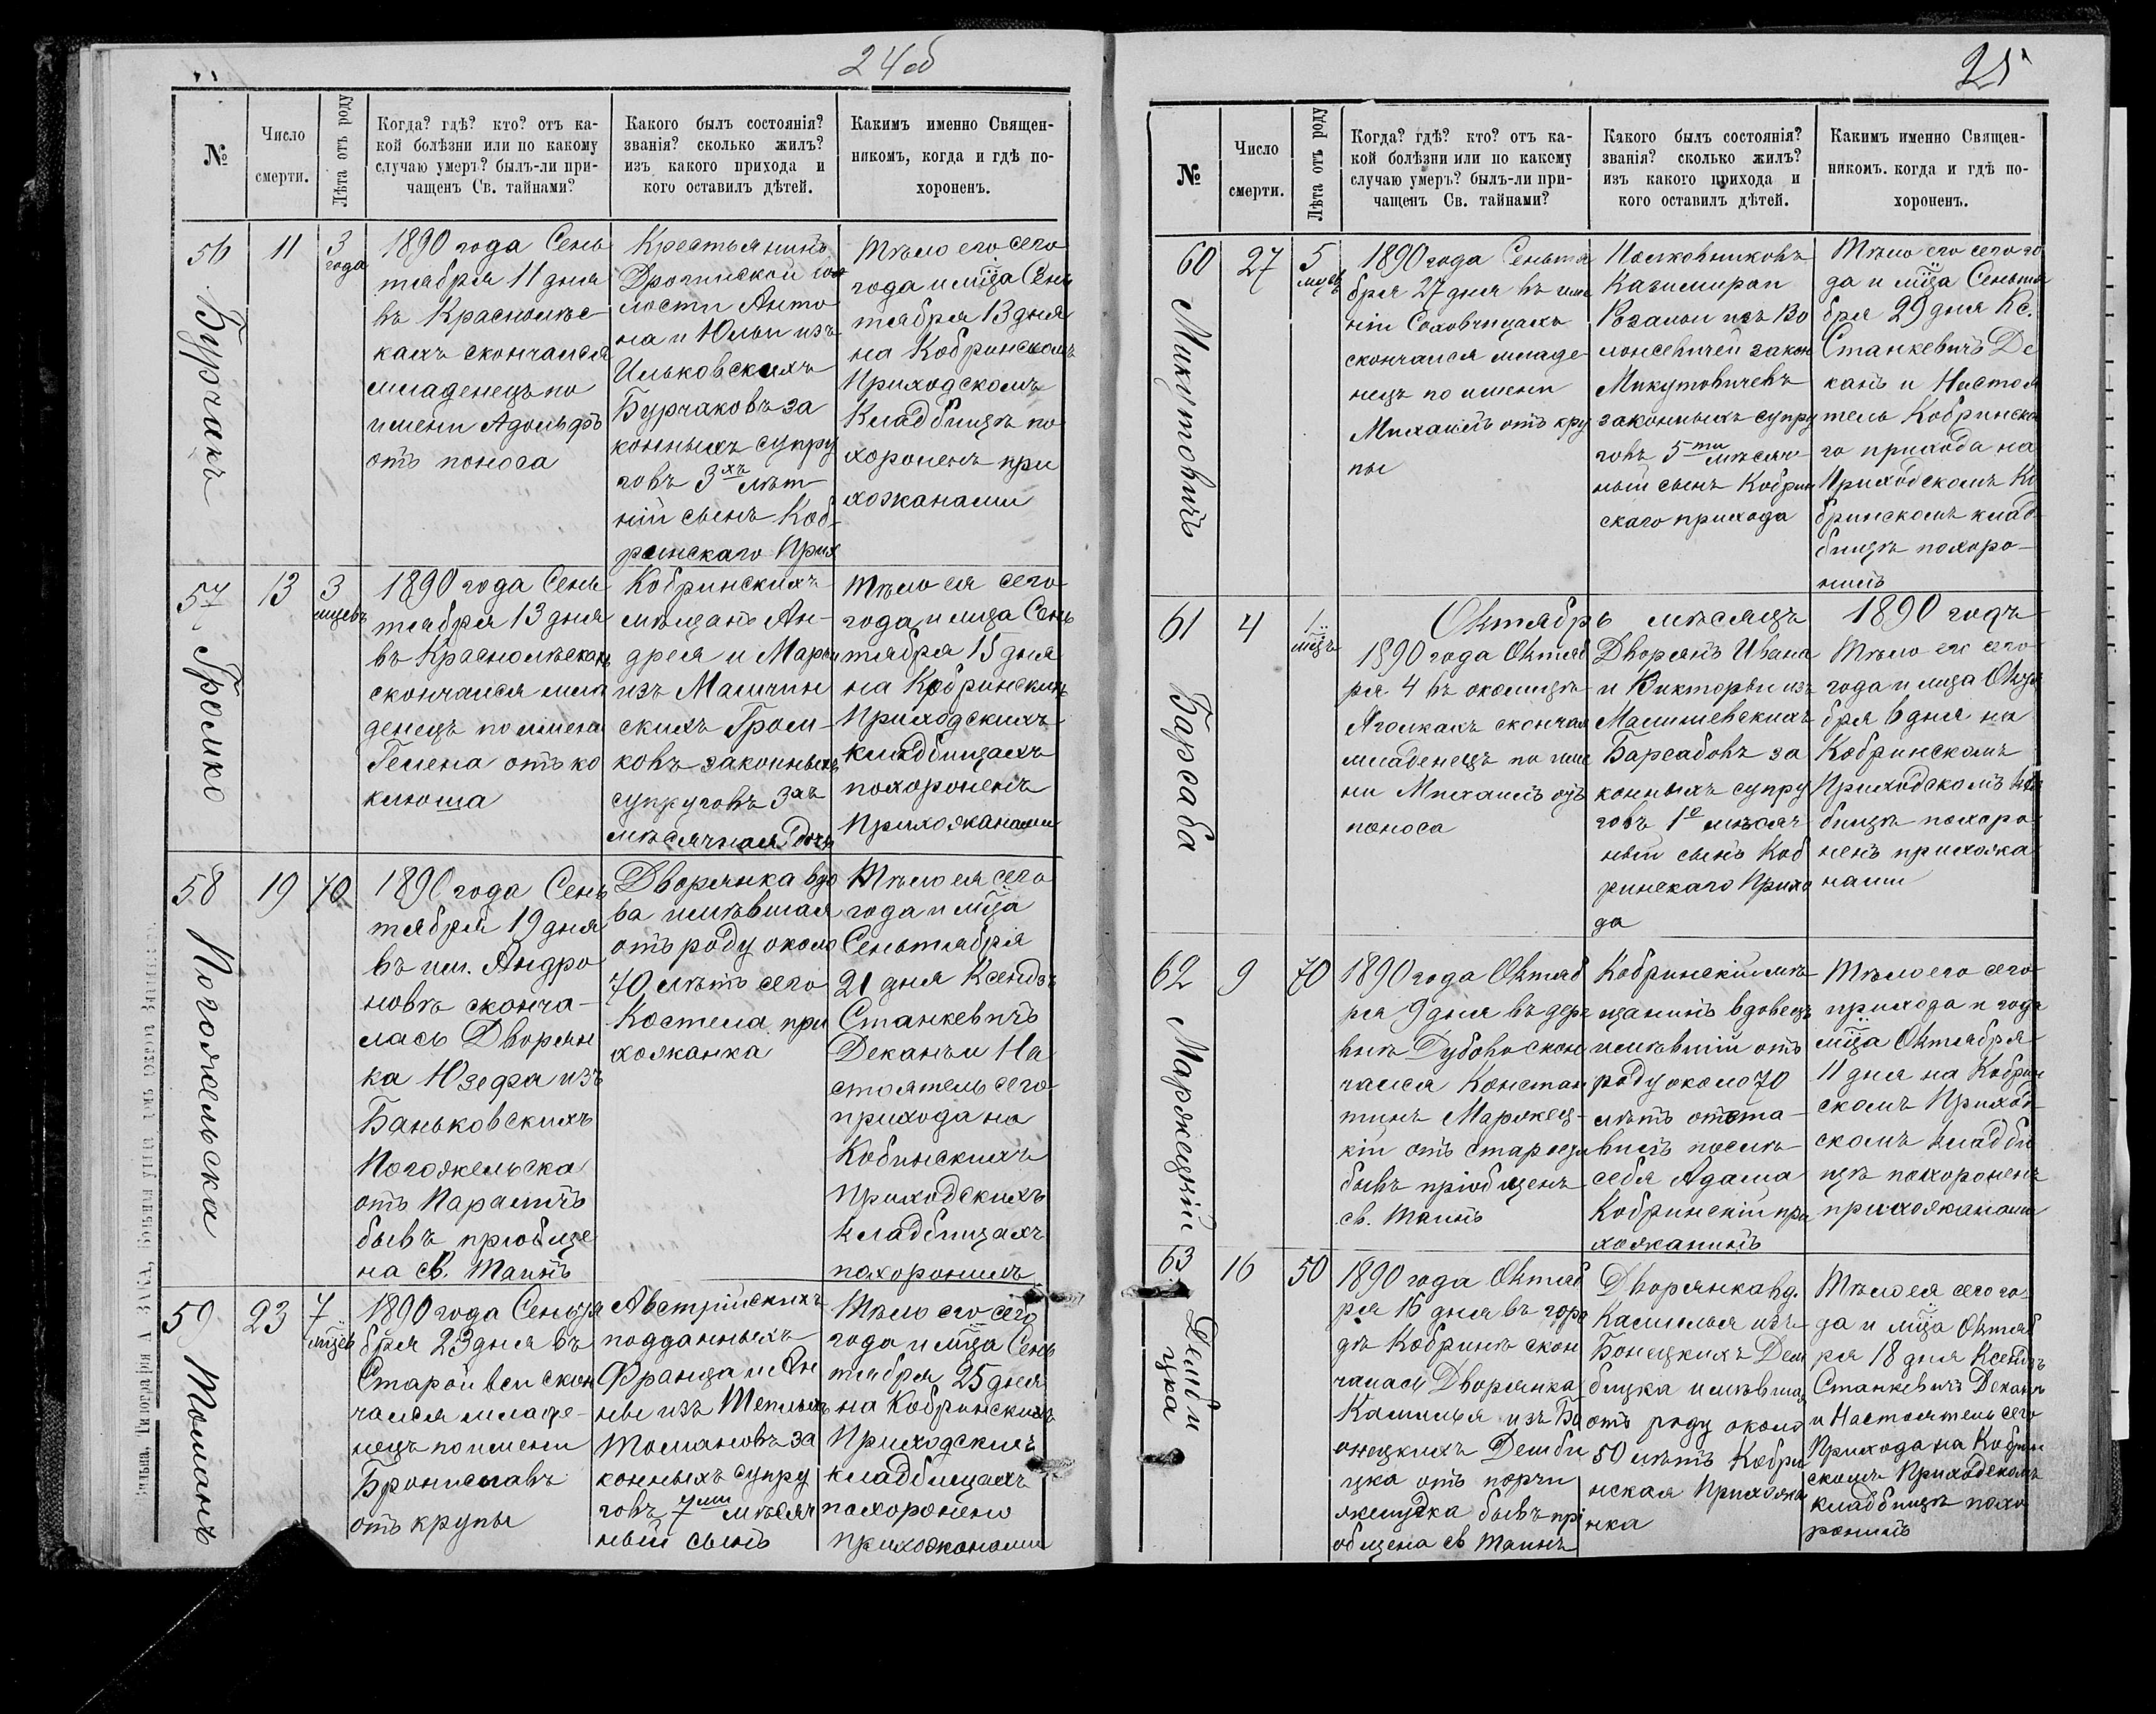 24об
№
Число
смерти.
Лѣта отъ роду
Когда? гдѣ? кто? отъ ка-
кой болѣзни или по какому
случаю умеръ? былъ-ли при-
чащенъ Св. тайнами?
Какого былъ состоянія?
званія? сколько жилъ?
изъ какого прихода и
кого оставилъ дѣтей.
Какимъ именно Священ-
никомъ, когда и гдѣ по-
хороненъ.
56
Бурчакъ
11
3
года
1890 года Сень
тября 11 дня
въ Краснолѣс-
кахъ скончался
младенецъ по
имени Адольфъ
отъ поноса
Крестьянинъ
Дрогичской во
лости Анто
на и Юльи изъ
Ильковскихъ
Бурчаковъ за
конныхъ супру
говъ 3хъ лѣт-
ній сынъ Коб-
ринскаго Прих
Тѣло его сего
года и мца Сень
тября 13 дня
на Кобринскомъ
Приходскомъ
Кладбищѣ по
хороненъ при
хожанами
57
Громко
13
3
мцевъ
1890 года Сень
тября 13 дня
въ Краснолѣскахъ
скончался мла
денецъ по имени
Гелена отъ ко
клюша
Кобринскихъ
мѣщанъ Ан-
дрея и Марьи
изъ Маличин
скихъ Гром-
ковъ законныхъ
супруговъ 3хъ
мѣсячная дочь
Тѣло ея сего
года и мца Сень
тября 15 дня
на Кобринскихъ
Приходскихъ
кладбищахъ
похороненъ
Прихожанами
58
Погожельска
19
70
1890 года Сень
тября 19 дня
въ им. Андро
новѣ сконча-
лась Дворян
ка Юзефа изъ
Баньковскихъ
Погожельска
отъ Параличъ
бывъ пріобще
на св. Таинъ
Дворянка вдо
ва имѣвшая
отъ роду около
70 лѣтъ сего
Костела при
хожанка
Тѣло ея сего
года и мца
Сеньтября
21 дня Ксендзъ
Станкевичъ
Деканъ и На
стоятель сего
прихода на
Кобинскихъ
Приходскихъ
кладбищахъ
похоронилъ
59
Томанъ
23
7
мцев
1890 года Сеньтя
бря 23 дня въ
Старой вси скон
чался младе-
нецъ по имени
Брониславъ
отъ крупы
Австрійскихъ
подданныхъ
Франца и Ан
ны изъ
Томановъ за
конныхъ супру
говъ 7ми мѣсяч
ный сынъ
Тѣло его сего
года и мца Сень
тября 25 дня
на Кобринскихъ
Приходскихъ
кладбищахъ
похоронено
прихожанами
25
№
Число
смерти.
Лѣта отъ роду
Когда? гдѣ? кто? отъ ка-
кой болѣзни или по какому
случаю умеръ? былъ-ли при-
чащенъ Св. тайнами?
Какого былъ состоянія?
званія? сколько жилъ?
изъ какого прихода и
кого оставилъ дѣтей.
Какимъ именно Священ-
никомъ. когда и гдѣ по-
хороненъ.
60
Микутовичъ
27
5
мцевъ
1890 года Сеньтя
бря 27 дня въ име
ніи Саховчицахъ
скончался младе-
нецъ по имени
Михаилъ отъ кру
пы
Казимира и
Розаліи изъ Во
законныхъ супру
говъ 5ти мѣсяч-
ный сынъ Кобрин
скаго прихода
Тѣло его сего го
да и мца Сеньтя
бря 29 дня Кс.
Станкевичъ Де
канъ и Настоя
тель Кобринска
го прихода на
Приходскомъ Ко
бринскомъ клад-
бищѣ похоро-
нилъ
Октябрь мѣсяцъ 1890 годъ
61
Барсаба
4
1
мцъ
1890 года Октяб
ря 4 въ околицѣ
скончал
младенецъ по име
ни Михаилъ отъ
поноса
Дворянъ Ивана
и Викторьи изъ
Малишевскихъ
Барсабовъ за
конныхъ супру
говъ 1о мѣсяч
ный сынъ Коб
ринскаго Прихо
да
Тѣло его сего
года и мца Октя
бря 6 дня на
Кобринскомъ
Приходскомъ клад
бищѣ похоро
ненъ прихожа
нами
62
Маржецкій
9
70
1890 года Октяб
ря 9 дня въ дере
внѣ Дубово скон
чался Констан
тинъ Маржец-
кій отъ старости
бывъ пріобщенъ
св. Таинъ
Кобринскій мѣ
щанинъ вдовецъ
имѣвшій отъ
роду около 70
лѣтъ оста-
вилъ послѣ
себя Адама
Кобринскій при
хожанинъ
Тѣло его сего
прихода и года
мца Октября
11 дня на Кобрин
скомъ Приход-
скомъ кладби
щѣ похороненъ
прихожанами
63
Демби
цка
16
50
1890 года Октяб
ря 16 дня въ горо
дѣ Кобринѣ скон
чалась Дворянка
Камилья изъ Бо
нецкихъ Демби
цка отъ порчи
желудка бывъ прі
общена св Таинъ
Дворянка вд.
Камилья изъ
Бонецкихъ Дем
бицка имѣвшая
отъ роду около
50 лѣтъ Кобри
нская Прихожа
нка
Тѣло ея сего го-
да и мца Октяб
ря 18 дня Ксендзъ
Станкевичъ Деканъ
и Настоятель сего
Прихода на Кобрин
скомъ Приходскомъ
кладбищѣ похо
ронилъ